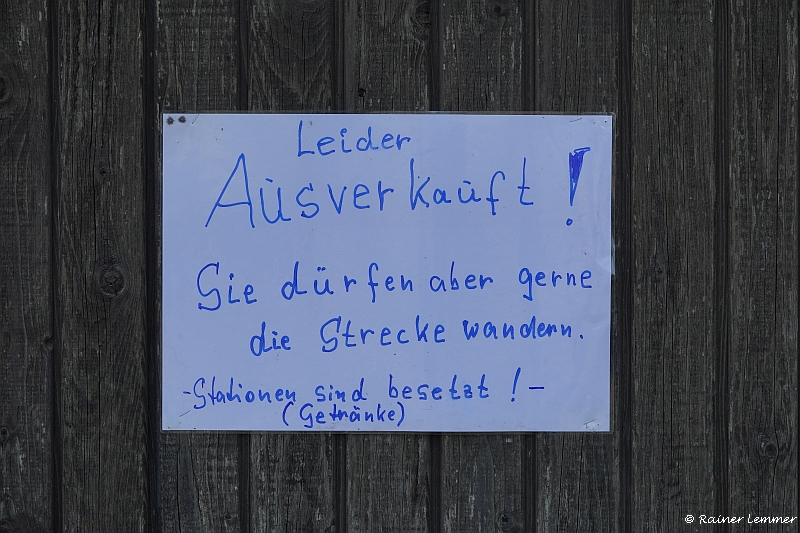 Leider
Ausverkauft!
Sie dürfen aber gerne
die Strecke wandern.
-Stationen sind besetzt!-
(Getränke)
© Rainer Lemmer